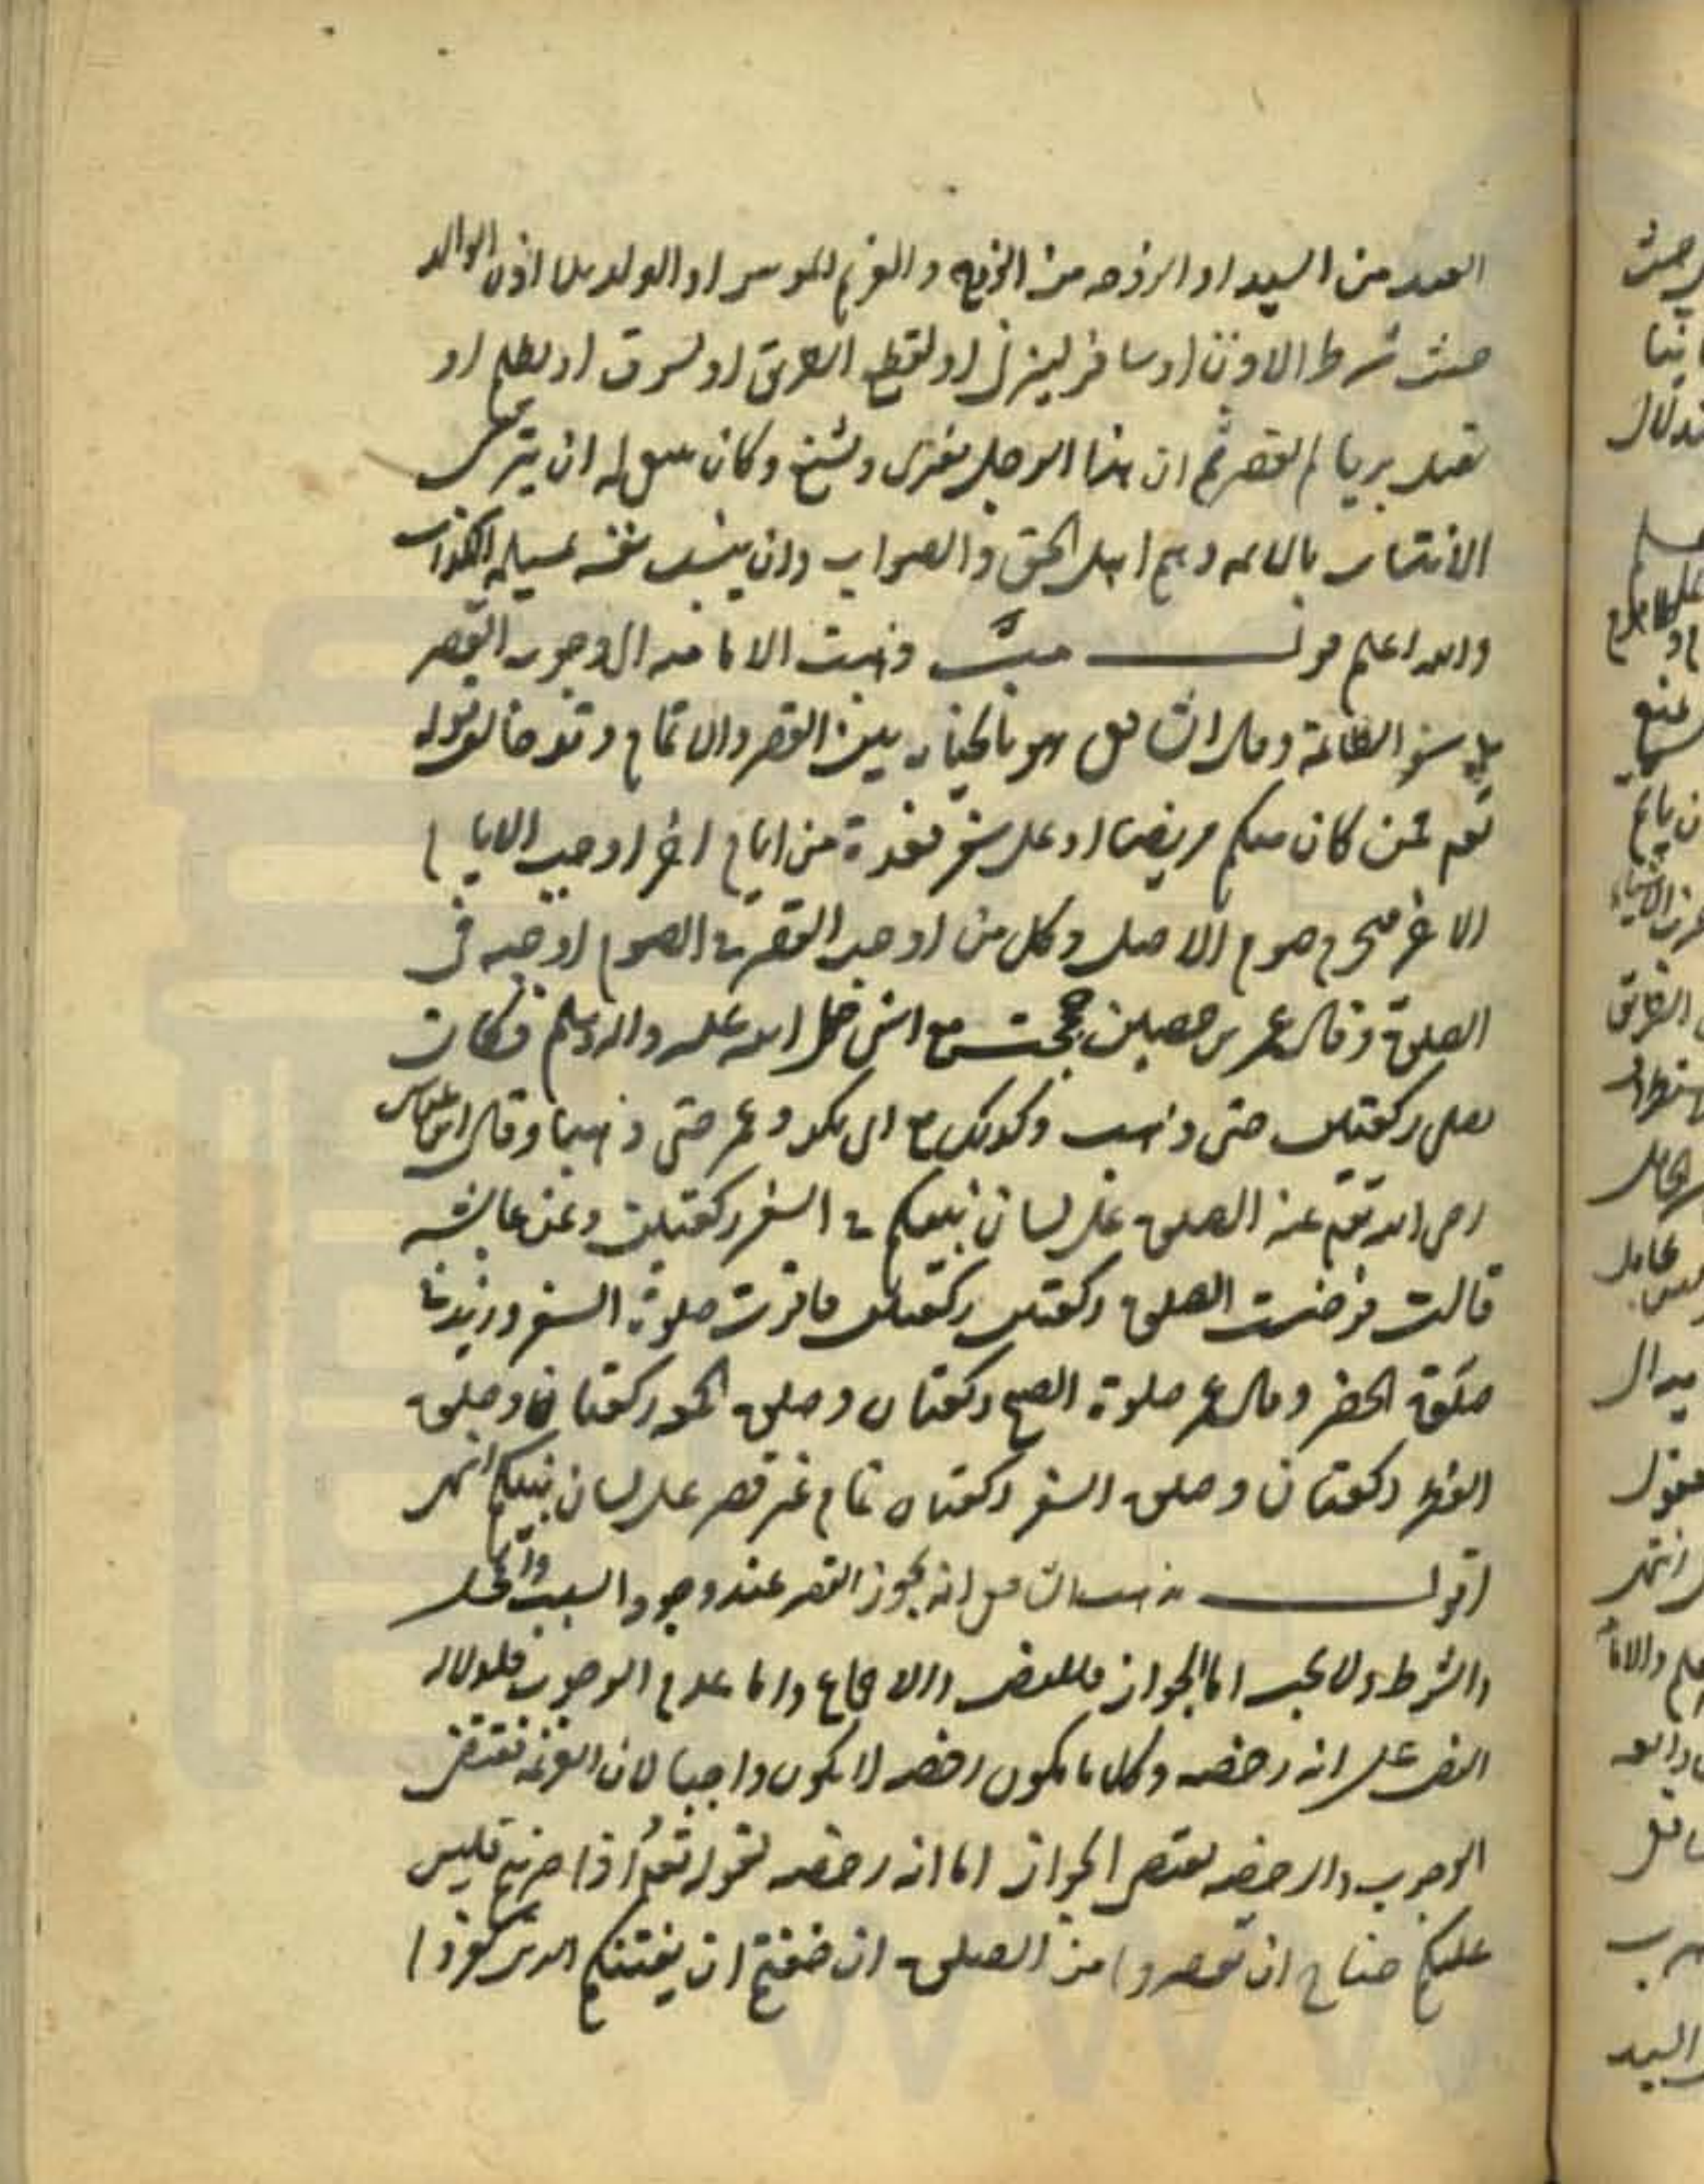 العبد من السيد او الزوجه من الزوج والغريم الموسر او الولد بلا اذن الوالد
حيث شرط الاذن او سافر ليزنى او لقطع الطريق او ليسرق او ليظلم او
يقتل بريا لم يقصر ثم ان هذا الرجل يفترى ويشنع وكان له ان
الانتساب بالائمه وهم اهل الحق والصواب وان ينسب نفسه الكذاب
والله اعلم قوله ذهبت الاماميه الى وجوب القصر
على سفر الطاعة وقال الشافعى هو بالخيار بين القصر والاتمام وقد خالف قوله
تعم فمن كان منكم مريضا او على سفر فعدة من ايام اخر اوجب الايام
الاخر صوم الاصل وكل من اوجب القصر فى الصوم اوجبه فى
الصلوة وقال عمر بن حصين حججت مع النبى صلى الله عليه واله وسلم فكان
يصلى ركعتين حتى ذهب وكذلك مع ابى بكر وعمر حتى ذهبا وقال ابن عباس
فرض الله تعم عنه الصلوة على لسان نبيكم فى السفر ركعتين وعن عايشه
قالت فرضت الصلوة ركعتين ركعتين فاقرت صلوة السفر وزيد فى
صلوة الحضر وقال عمر صلوة الصبح ركعتان وصلوة الجمعه ركعتان وصلوة
الفطر ركعتان وصلوة السفر ركعتان تمام غير قصر على لسان نبيكم انتهى
اقول مذهب الشافعى انه يجوز القصر عند وجود السبب والمحل
والشرط ولا يجب اما الجواز فللنص والاجماع واما عدم الوجوب فلدلاله
النص على انه رخصه وكل ما يكون رخصه لا يكون واجبا لان العزيمه تقتضى
الوجوب والرخصه تقتضى الجواز اما انه رخصه لقوله تعم اذا ضربتم فليس
عليكم جناح ان تقصروا من الصلوة ان خفتم ان يفتنكم الذين كفروا